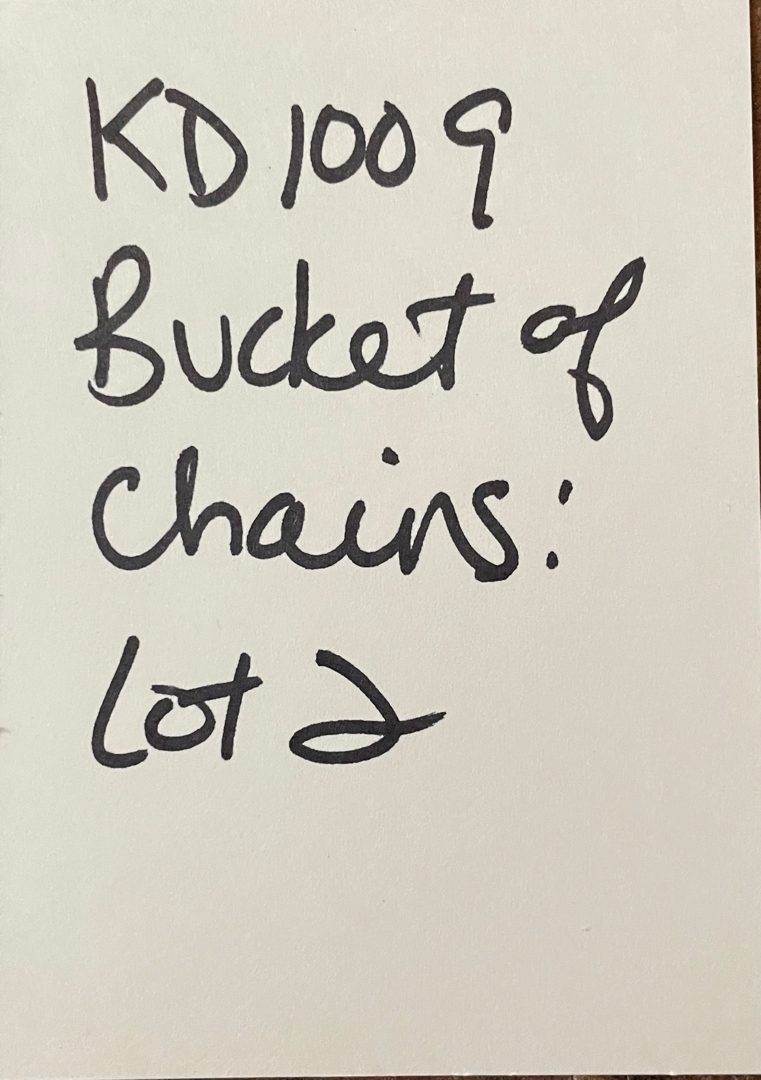 KD1009
Bucket of
Chains:
Lot 2